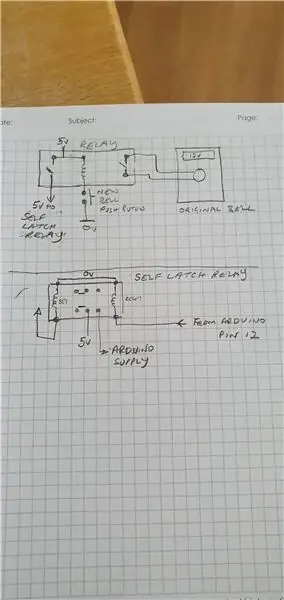 ate: Subject: Page:
5V RELAY
12V
5V TO
SELF
LATCH
RELAY
NEW
BELL
PUSH BUTTON
0V
ORIGINAL BELL
SELF LATCH RELAY
0V
SET
RESET
5V
ARDUINO
SUPPLY
FROM ARDUINO
PIN 12